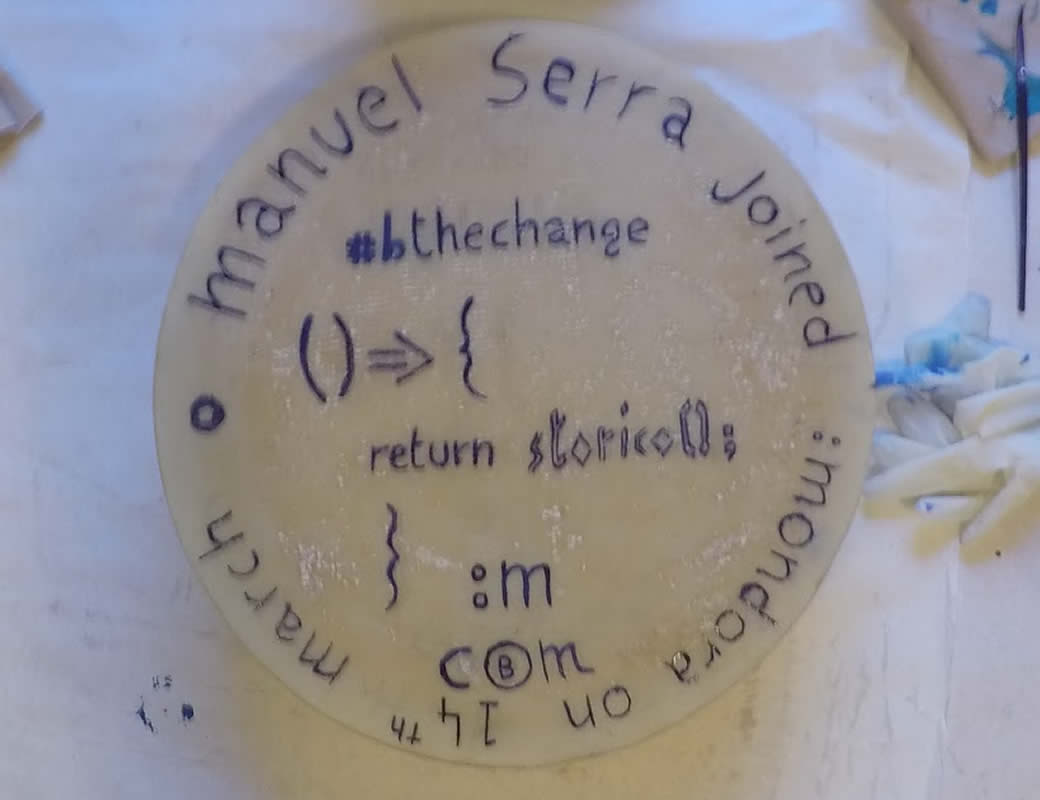 manuel Serra joined :mondora on 14th march
#bthechange
() => {
return storico();
}
:m
c Ⓑ m